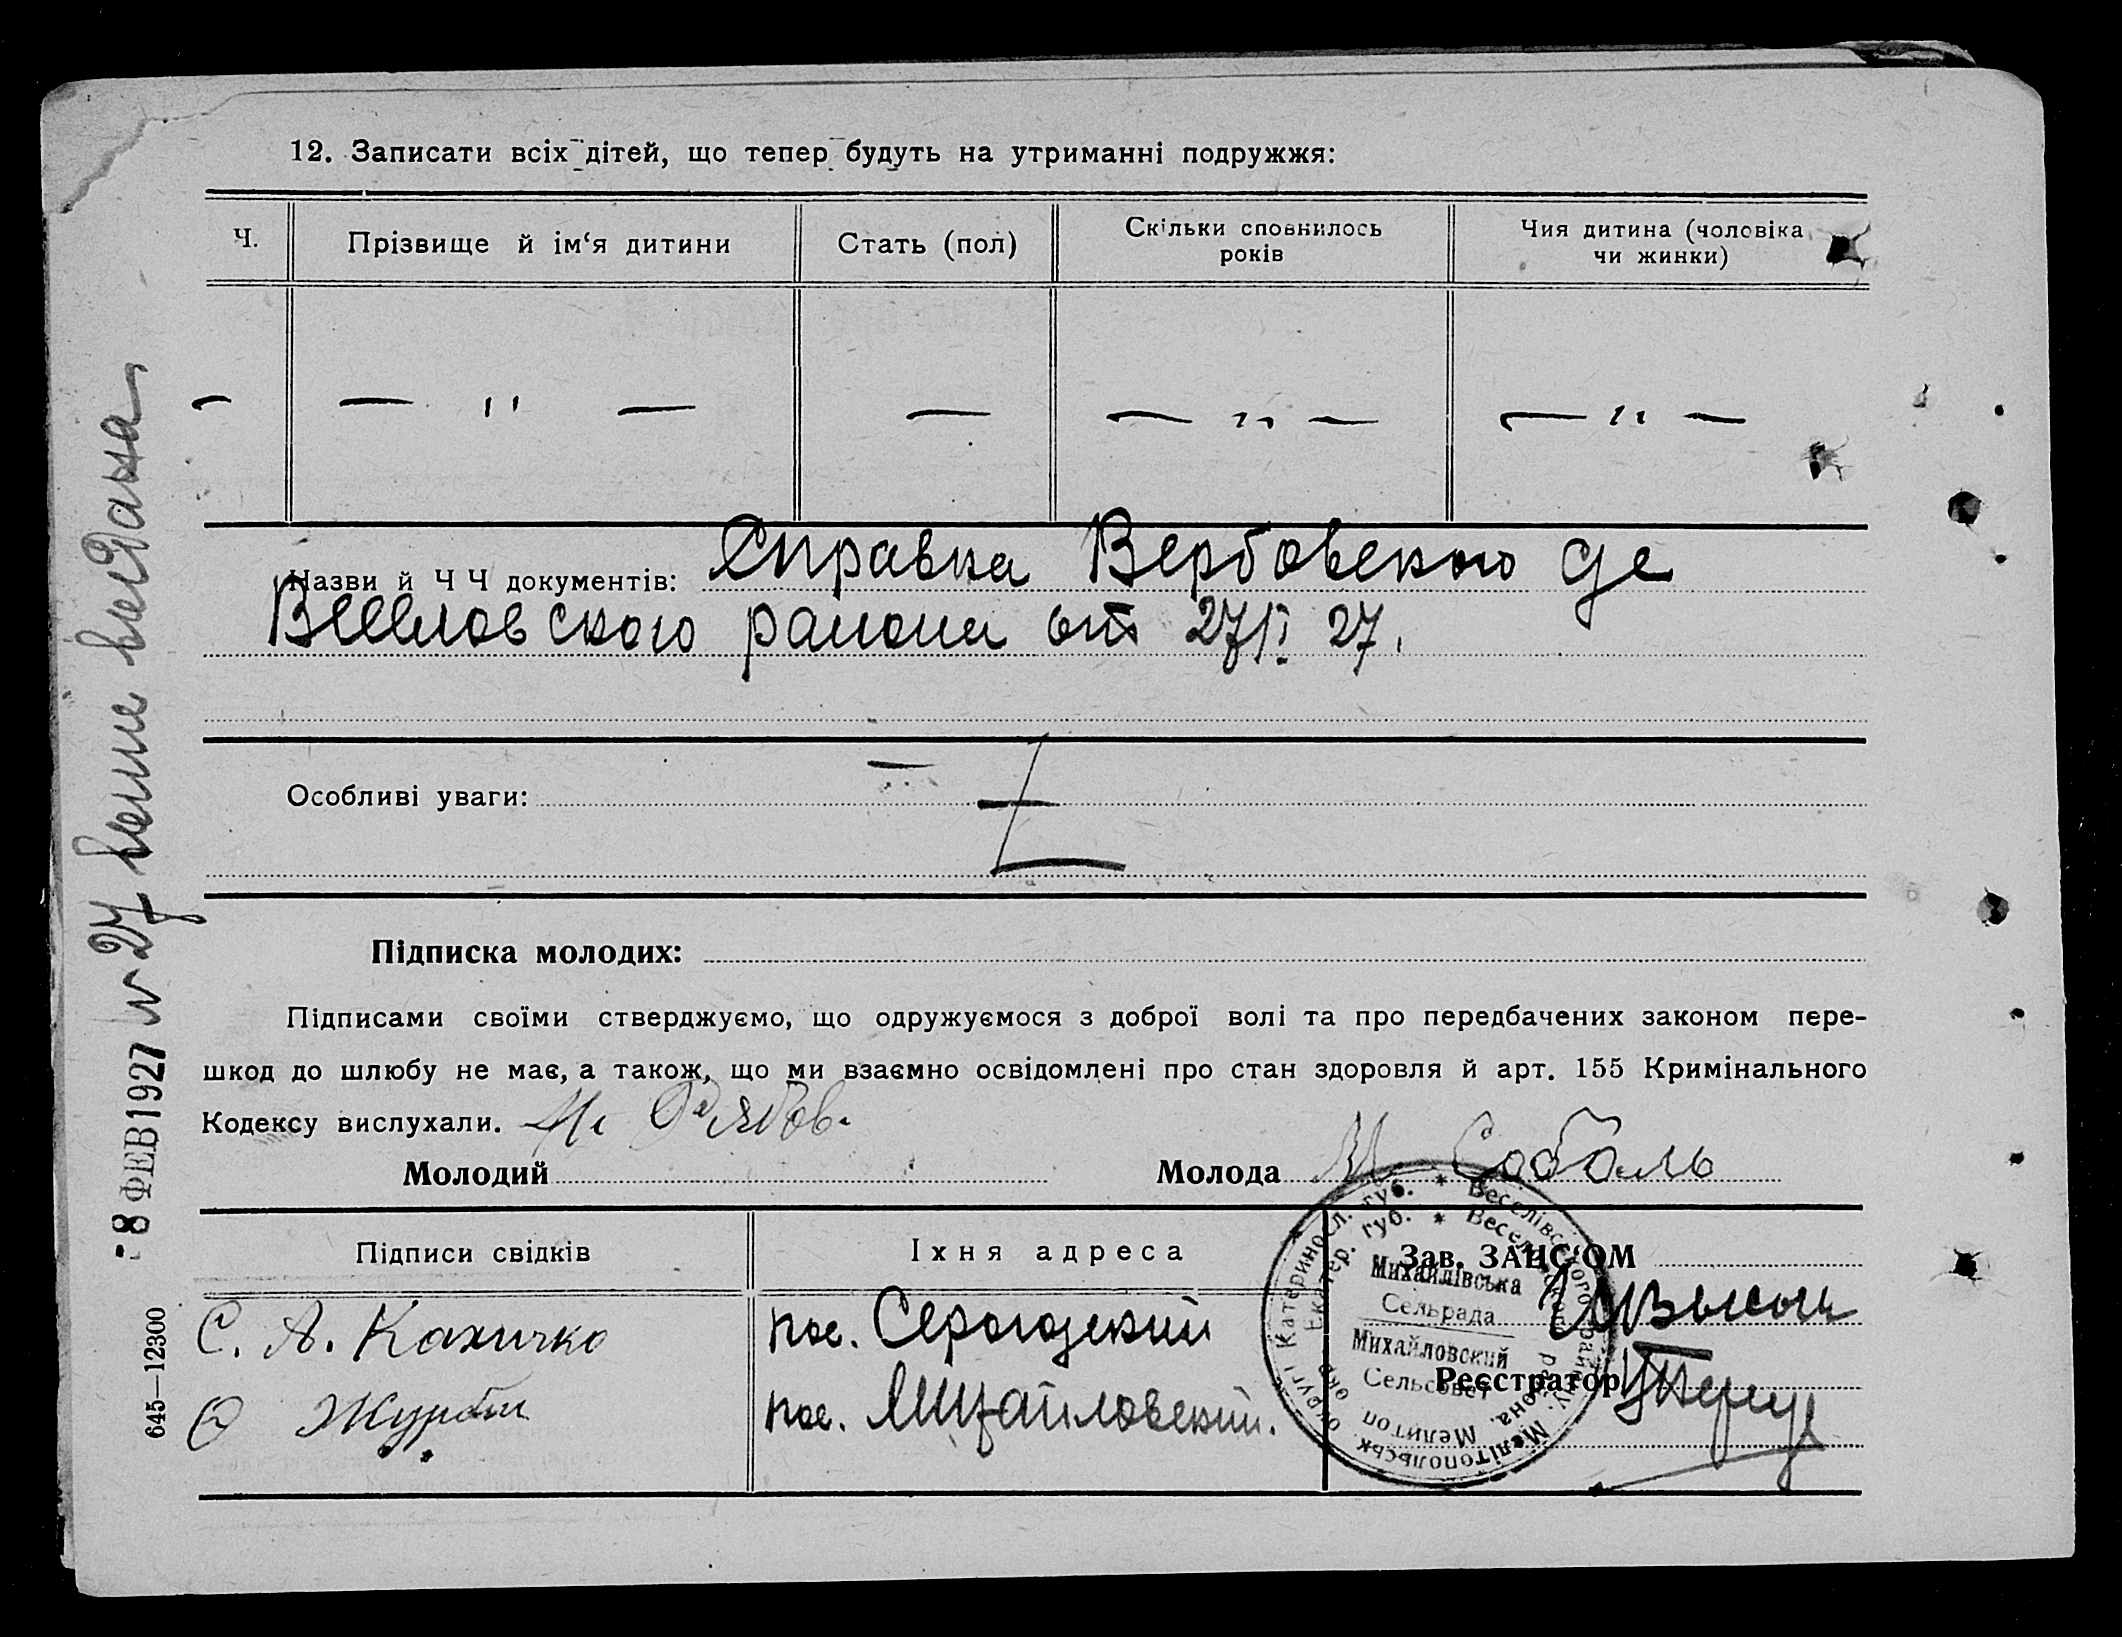 12. Записати всіх дітей, що тепер будуть на утриманні подружжя:
Ч. Прізвище й ім‘я дитини Стать (пол) Скільки сповнилось років Чия дитина (чоловіка чи жинки)
— — " — — — " — — " —
Назви й Ч Ч документів: Справка Вербовского
Веселовского района от 27/І 27.
Особливі уваги:
Підписка молодих:
Підписами своїми стверджуємо, що одружуємося з доброї волі та про передбачених законом пере-
шкод до шлюбу не має, а також, що ми взаємно освідомлені про стан здоровля й арт. 155 Кримінального
Кодексу вислухали. Рябов.
Молодий Молода М. Соболь
Підписи свідків Їхня адреса Зав. ЗАГС‘ОМ
С. А. Кахичко пос. Серогозский
Журба пос. Михайловский.
Реєстратор
Михайлівська
Сельрада
Михайловский
Сельсовет
Катериносл. губ. * Веселівського району, Мелітопольськ. округі
Екатер. губ. * Веселовского района, Мелитоп. окр.
8 ФЕВ 1927 № 27 выдана
645—12300